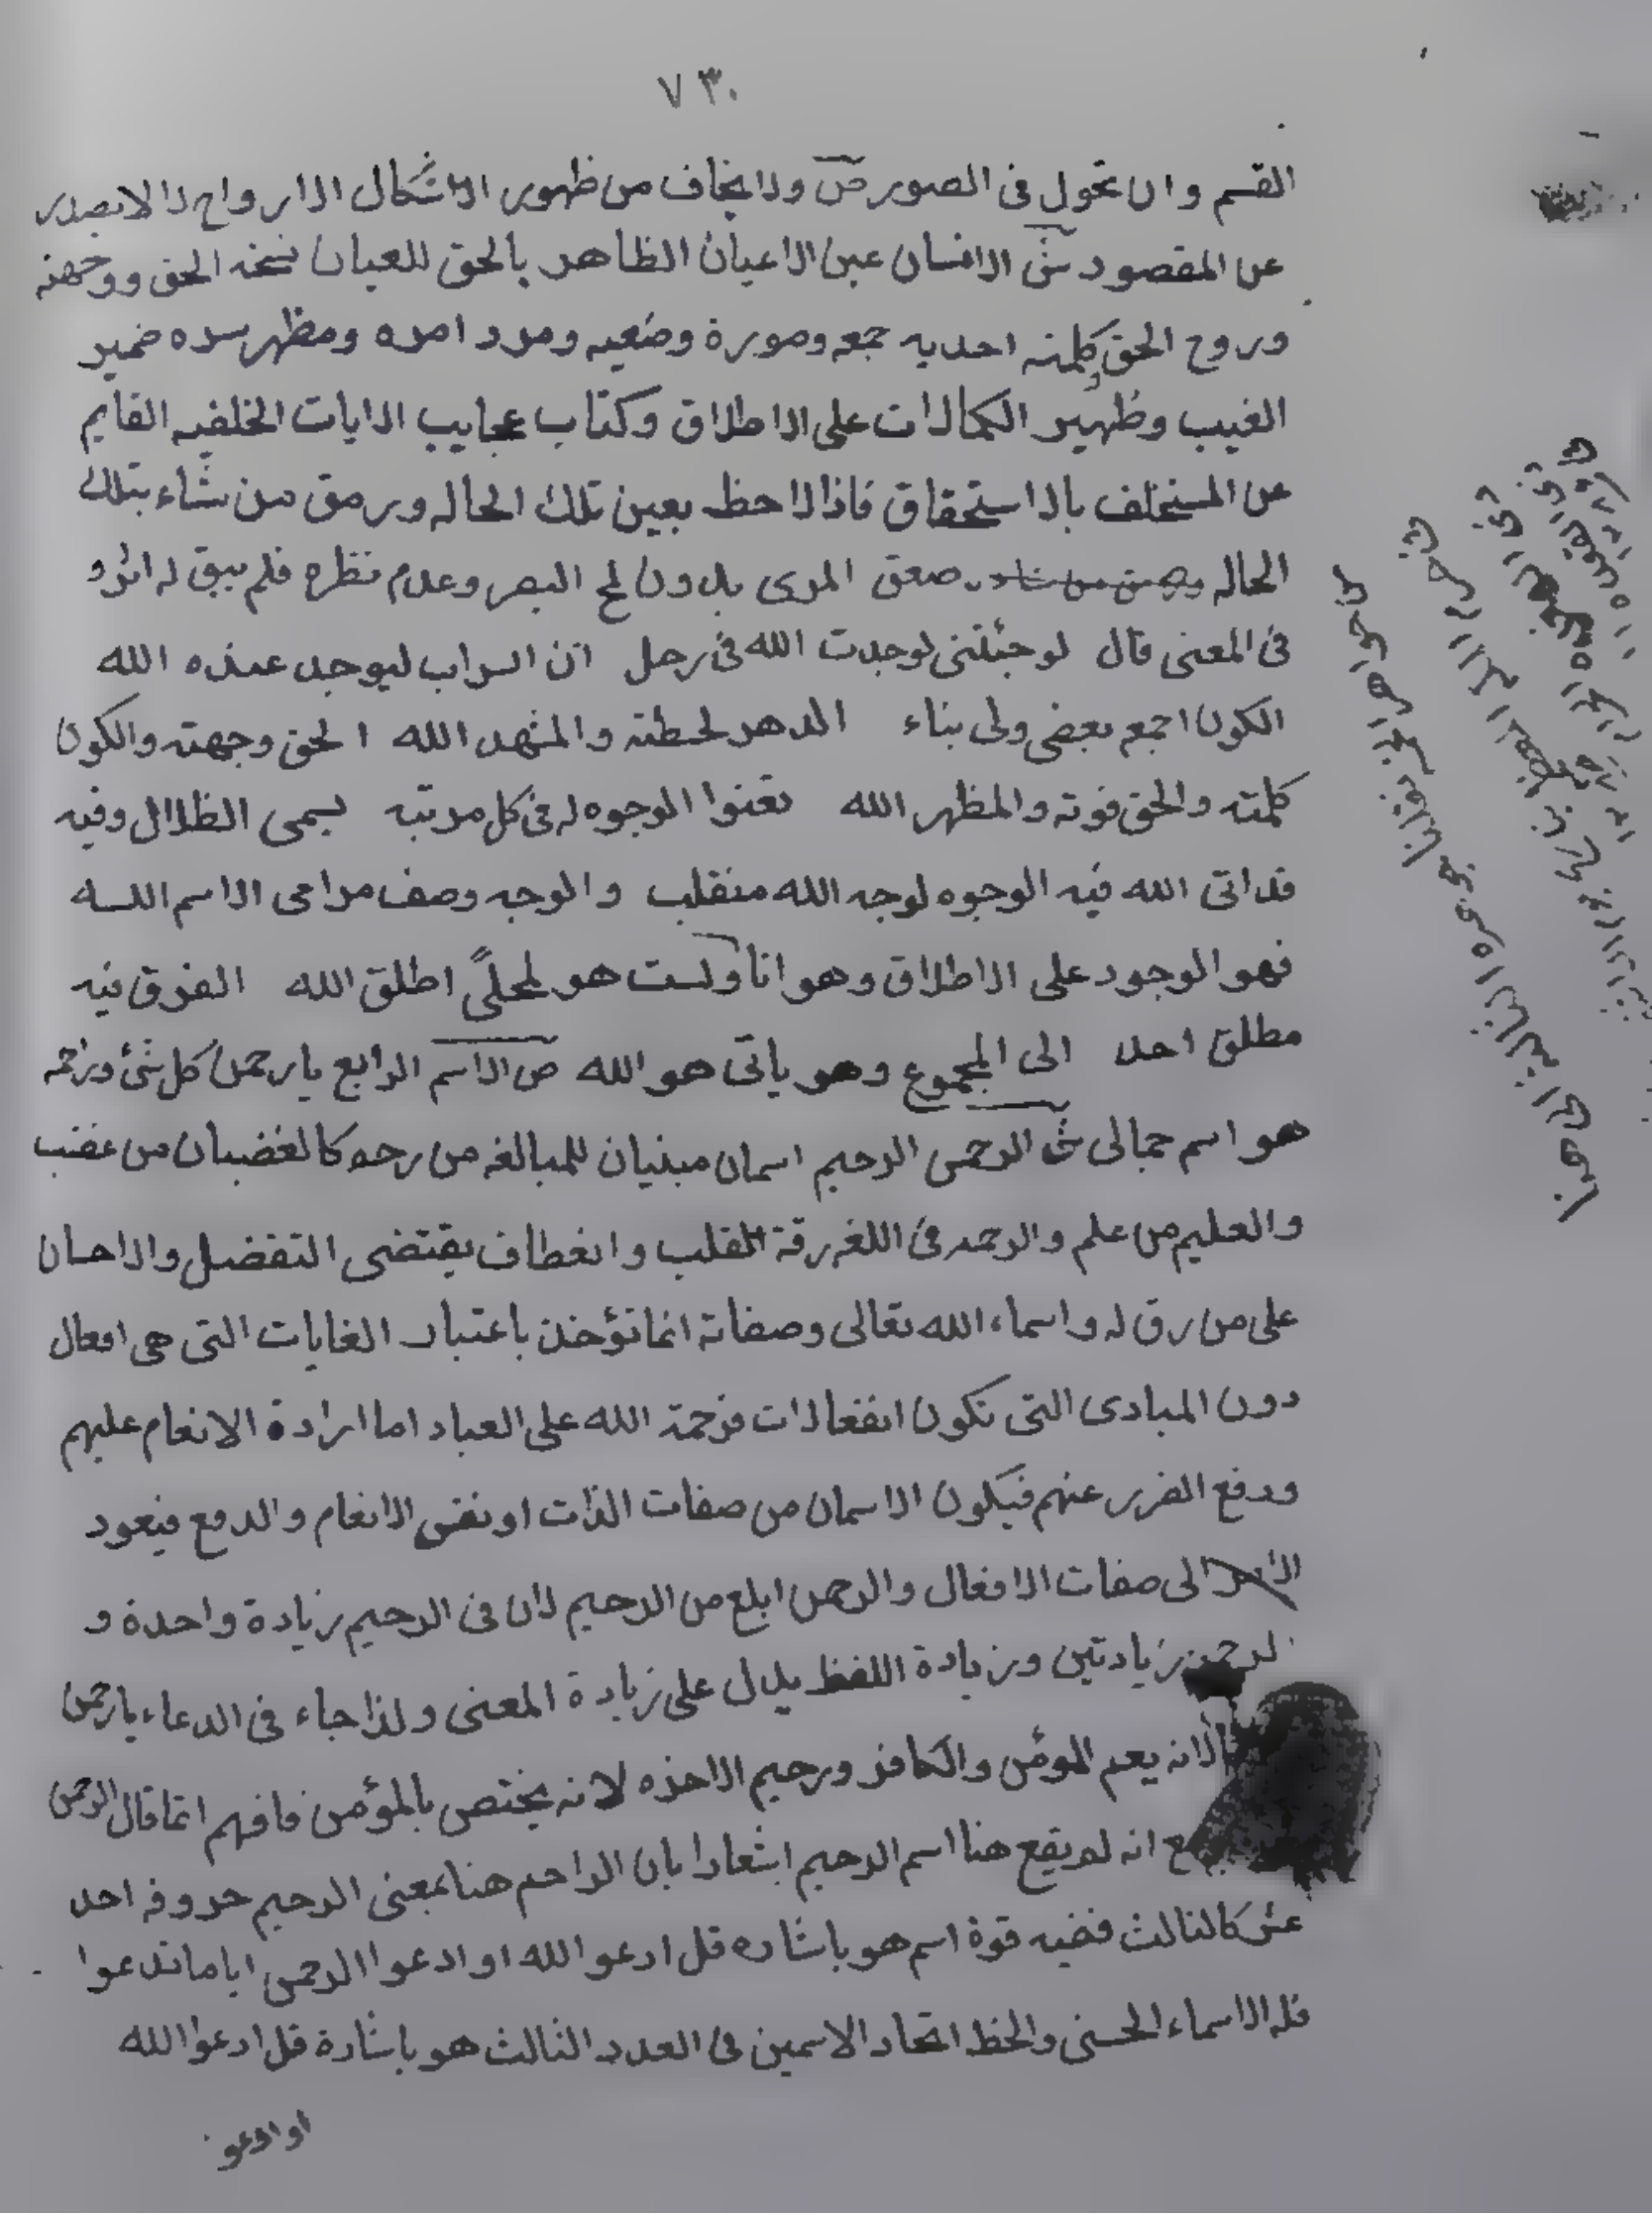 ٧٣٠
القسم وان تحول فى الصور ص ولا يخاف من ظهور الاشكال الارواح لا لا تصدر
عن المقصود ش الانسان عين الاعيان الظاهر بالحق للعيان نسخة الحق ووجهته
وروح الحق وكلمته احديه جمعه وصورة وضعيه ومرد امره ومظهر سره ضمير
الغيب وظهير الكمالات على الاطلاق وكتاب عجايب الايات الخلفيه القايم
عن المستخلف بالاستحقاق فاذا لاحظ بعين تلك الحاله ورمق من شاء بتلك
الحاله صعق المرى بدون لمح البصر وعدم نظره فلم يبق له اثر و
فى المعنى قال لو جئتنى لوجدت الله فى رجل ان السراب ليوجد عنده الله
الكون اجمع بعضى ولى بناء الدهر لحظته والمشهد الله الحق وجهته والكون
كلمته والحق قوته والمظهر الله تعنوا الوجوه له فى كل مرتبه يسمى الظلال وفيه
قد اتى الله فيه الوجوه لوجه الله منقلب والوجه وصف مراعى الاسم الله
فهو الوجود على الاطلاق وهو انا ولست هو لمحلى اطلق الله الفرق فيه
مطلق احد الى المجموع وهو ياتى هو الله ص الاسم الرابع يا رحمن كل شئ وراحمه
هو اسم جمالى ش الرحمن الرحيم اسمان مبنيان للمبالغه من رحم كالغضبان من غضب
والعليم من علم والرحمه فى اللغه رقة القلب وانعطاف يقتضى التفضل والاحسان
على من رق له واسماء الله تعالى وصفاته انما تؤخذ باعتبار الغايات التى هى افعال
دون المبادى التى تكون انفعالات فرحمة الله على العباد اما ارادة الانعام عليهم
ودفع الضرر عنهم فيكون الاسمان من صفات الذات او نفس الانعام والدفع فيعود
الى صفات الافعال والرحمن ابلغ من الرحيم لان فى الرحيم زيادة واحدة و
الرحمن زيادتين وزيادة اللفظ يدل على زيادة المعنى ولذا جاء فى الدعاء يا رحمن
لانه يعم المومن والكافر ورحيم الاخره لانه يختص بالمؤمن فافهم انما قال الرحمن
مع انه لم يقع هنا اسم الرحيم اشعارا بان الراحم هنا بمعنى الرحيم حروفه احد
عشر كالثالث ففيه قوة اسم هو باشاره قل ادعوا الله او ادعوا الرحمن اياما تدعوا
فله الاسماء الحسنى والحظ اتحاد الاسمين فى العدد الثالث هو باشارة قل ادعوا الله
او ادعو